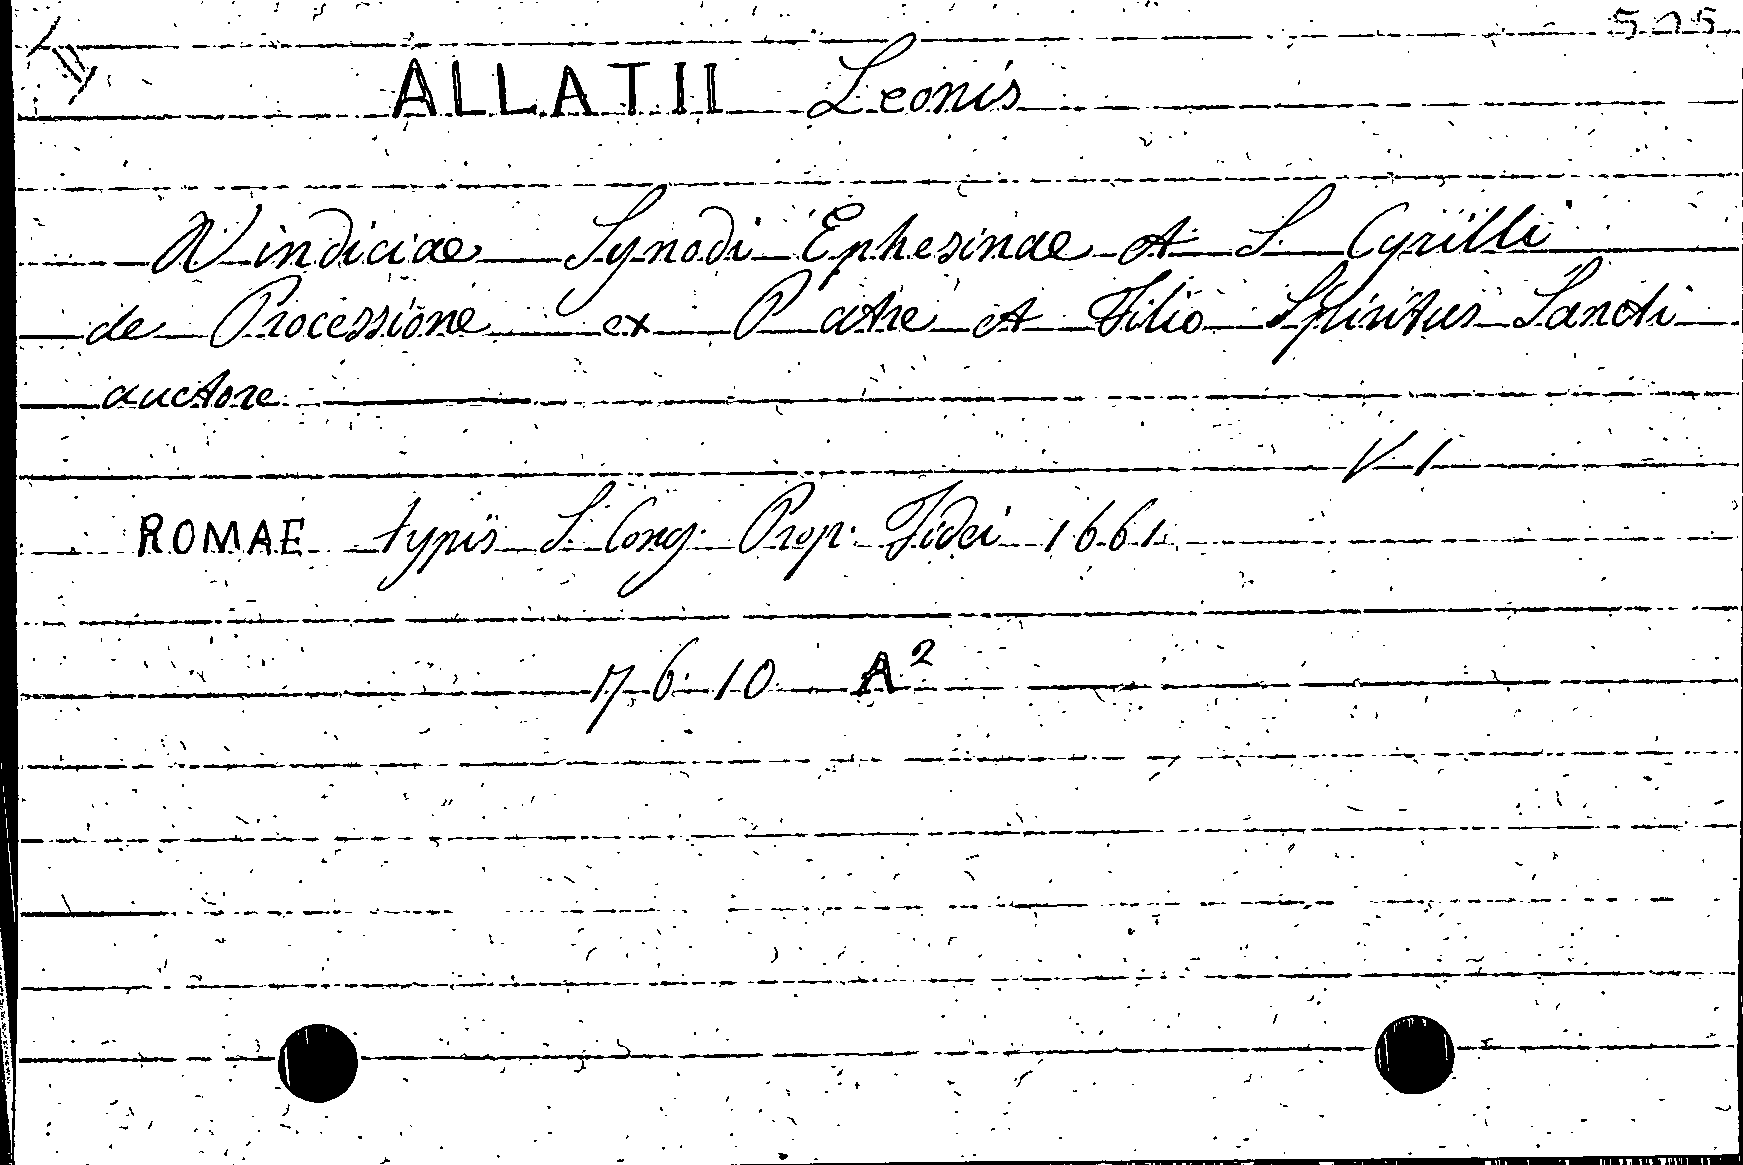 525
ALLATII Leonis
Vindiciae Synodi Ephesinae et S. Cyrilli
de Processione ex Patre et Filio Spiritus Sancti
auctore ———
V. 1
ROMAE typis S. Cong. Prop. Fidei 1661.
17. 6. 10 A²